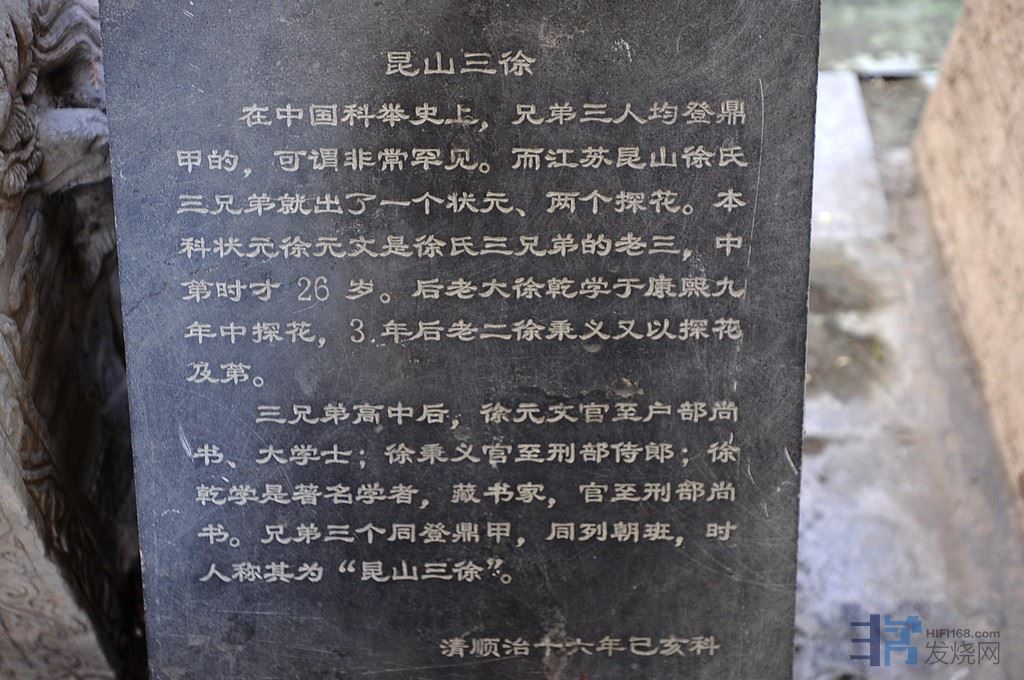 昆山三徐
在中国科举史上，兄弟三人均登鼎
甲的，可谓非常罕见。而江苏昆山徐氏
三兄弟就出了一个状元、两个探花。本
科状元徐元文是徐氏三兄弟的老三，中
第时才 26 岁。后老大徐乾学于康熙九
年中探花，3.年后老二徐秉义又以探花
及第。
三兄弟高中后，徐元文官至户部尚
书、大学士；徐秉义官至刑部侍郎；徐
乾学是著名学者，藏书家，官至刑部尚
书。兄弟三个同登鼎甲，同列朝班，时
人称其为“昆山三徐”。
清顺治十六年己亥科
HIFI168.com
发烧网